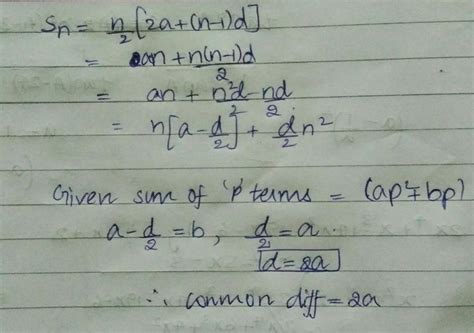 Sn = n/2 [2a+(n-1)d]
= an + n(n-1)d/2
= an + n²d/2 - nd/2
= n[a-d/2] + d/2 n²
Given sum of 'p' terms = (ap²+bp)
a-d/2 = b, d/2 = a.
d=2a
∴ common diff = 2a